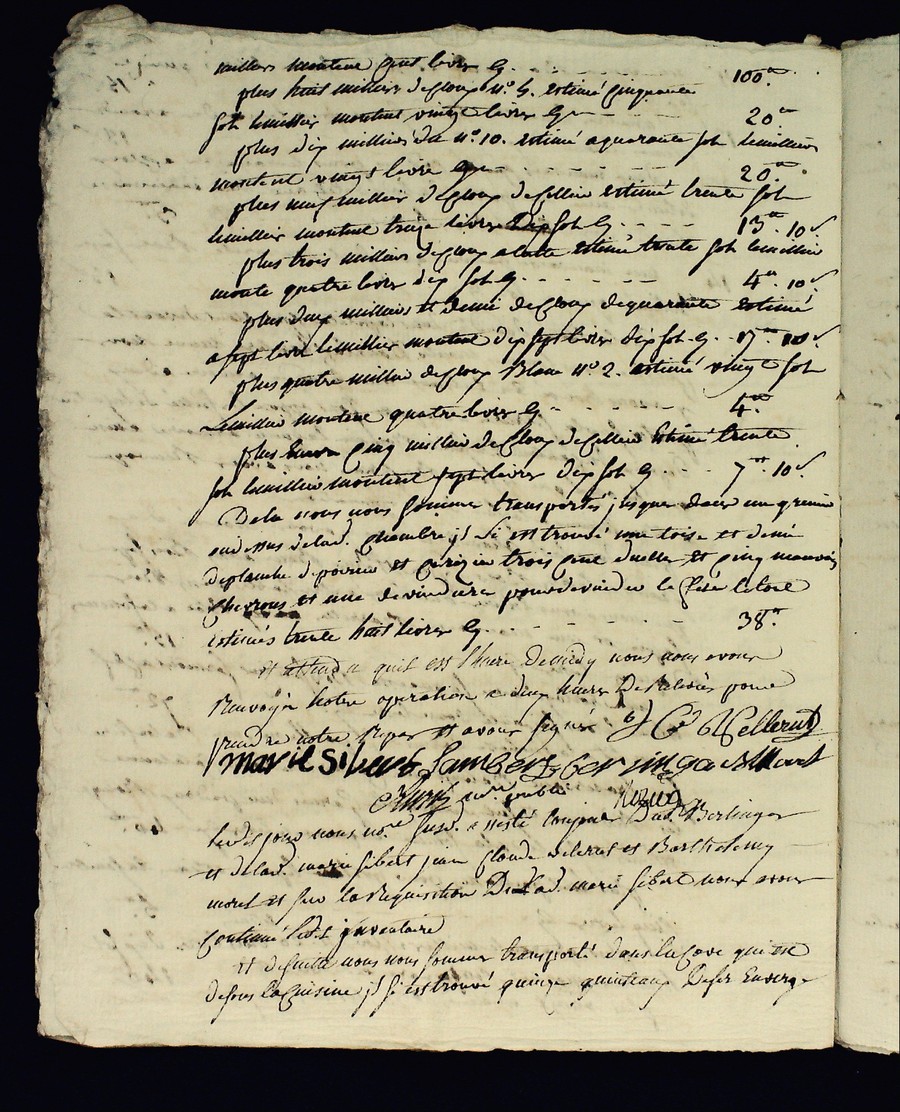 milliers montent cent livres Cy - - - - 100ᵗᵗ
plus huit milliers de cloux nº 4. estimé cinquante
sols le millier montent vingt livres Cy - - - 20ᵗᵗ
plus dix milliers du nº 10. estimé a quarante sols le milliers
montent vingt livre Cy - - - - 20.ᵗᵗ
plus neuf millier de cloux de estimé trente sols
le millier montent treize livres Dix sols Cy - - - 13ᵗᵗ 10ˢ
plus trois milliers de cloux a latte estimé trente sols le millier
monte quatre livres dix sols Cy - - - - 4ᵗᵗ 10ˢ
plus deux milliers et demi de cloux de quarante estimé
a sept livre le millier montent dix sept livres dix sols Cy - 17ᵗᵗ 10ˢ
plus quatre millier de cloux Blanc nº 2. estimé vingt sols
Le millier montent quatre livres Cy - - - - 4ᵗᵗ
plus Encore Cinq millier de Cloux de Estimé trente
sols le millier montent sept livres dix sols Cy - - - 7ᵗᵗ 10ˢ
Dela nous nous sommes transportés jusques dans un grenier
au dessus de lad. chambre jl s'i est trouvé une toise et demi
de planche et trois et cinq mauvais
chevrons et une devindoire pour devinder le
estimés trente huit livres Cy - - - - 38ᵗᵗ
et attendu quil est l'heure de midy nous nous avons
Renvoyer notre operation a deux heures De Relevée pour
prendre notre Repas et avons signés J C Vellerut
marie Sibert Lambert beringer Moret
public
led. jour nous no.ʳᵉ susd. assisté toujours Dud. Berlinger
et de lad. marie sibert jean Claude velerut et Barthelemy
moret et sur la Requisition De lad. marie sibert nous avons
Continué led. jnventaire
et desuitte nous nous sommes transporté dans la Cave qui est
desous la Cuisine jl s'i est trouvé quinze quinteaux De fer En verge